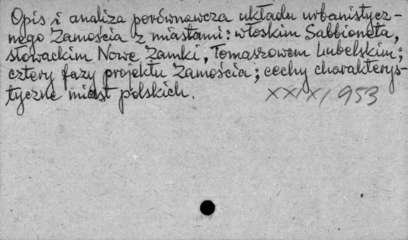 Opis i analiza porównawcza układu urbanistycz-
nego Zamościa z miastami: włoskim Sabbioneta,
słowackim Nowe Zamki, Tomaszowem Lubelskim;
cztery fazy projektu Zamościa; cechy charakterys-
tyczne miast polskich.
XXIX/953